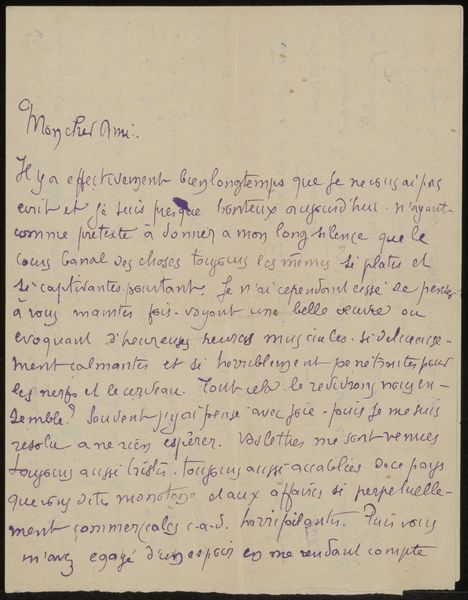 Mon cher Ami.
Il y a effectivement bien longtemps que je ne vous ai pas
ecrit et je suis presque honteux aujourd'hui n'ayant
comme pretexte à donner a mon long silence que le
cours banal des choses toujours les mêmes si plates et
si captivantes pourtant. Je n'ai cependant cessé de penser
à vous maintes fois. voyant une belle œuvre ou
evoquant d'heureuses heures musicales. si delicieuse-
ment calmantes et si horriblement penetrantes pour
les nerfs et le cerveau. Tout cela le revivrons nous en-
semble? Souvent j'y ai pensé avec joie. puis je me suis
resolu a ne rien espérer. Vos lettres me sont venues
toujours aussi tristes. toujours aussi accablées de ce pays
que vous dites monotone et aux affaires si perpetuelle-
ment commerciales c.a.d. horripilantes. Puis vous
m'avez egayé d'un espoir en me rendant compte